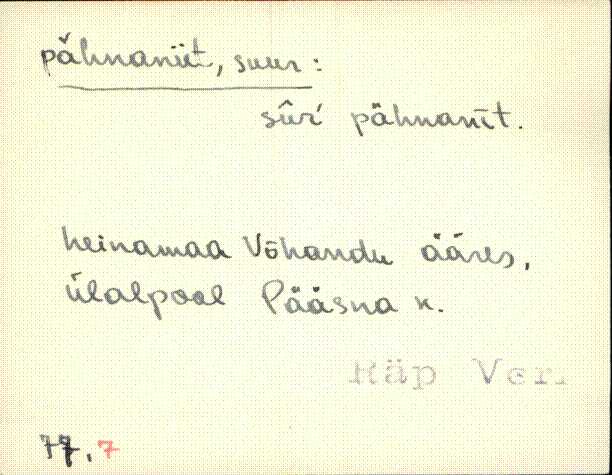 pähnaniit, suur:
sûŕ pähnanīt.
heinamaa Võhandu ääres,
ülalpool Pääsna k.
Räp Ver.
77.7